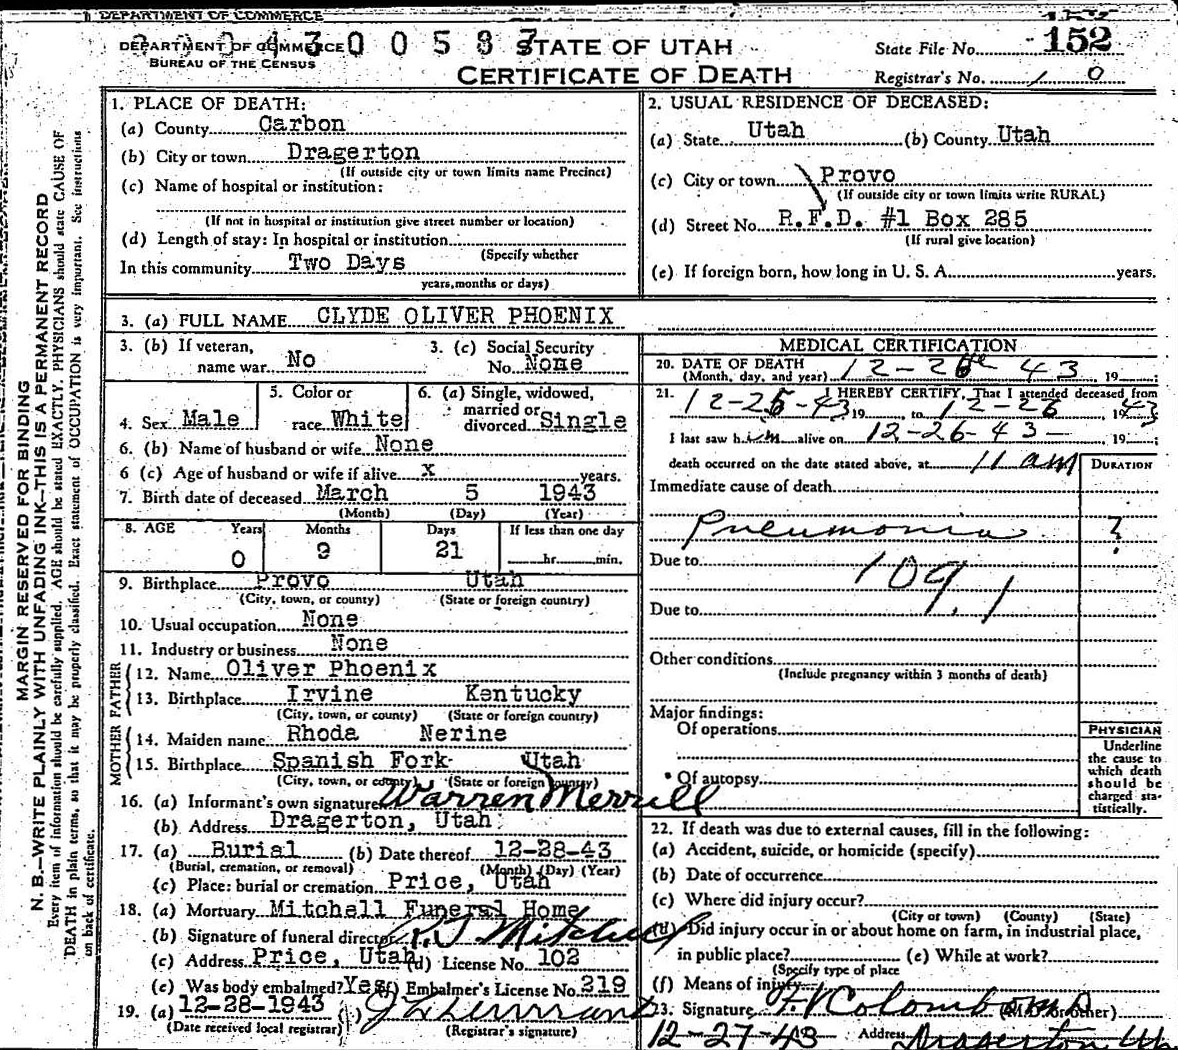 DEPARTMENT OF COMMERCE
DEPARTMENT OF COMMERCE
BUREAU OF THE CENSUS
STATE OF UTAH
CERTIFICATE OF DEATH
State File No. 152
Registrar's No.
MARGIN RESERVED FOR BINDING
N. B.—WRITE PLAINLY WITH UNFADING INK—THIS IS A PERMANENT RECORD
Every item of information should be carefully supplied. AGE should be stated EXACTLY. PHYSICIANS should state CAUSE OF
DEATH in plain terms, so that it may be properly classified. Exact statement of OCCUPATION is very important. See instructions
on back of certificate.
1. PLACE OF DEATH:
(a) County Carbon
(b) City or town Dragerton
(If outside city or town limits name Precinct)
(c) Name of hospital or institution:
(If not in hospital or institution give street number or location)
(d) Length of stay: In hospital or institution
(Specify whether
In this community Two Days
years, months or days)
2. USUAL RESIDENCE OF DECEASED:
(a) State Utah (b) County Utah
(c) City or town Provo
(If outside city or town limits write RURAL)
(d) Street No. R.F.D. #1 Box 285
(If rural give location)
(e) If foreign born, how long in U. S. A. years.
3. (a) FULL NAME CLYDE OLIVER PHOENIX
3. (b) If veteran, name war No
3. (c) Social Security No. None
4. Sex Male
5. Color or race White
6. (a) Single, widowed, married or divorced Single
6. (b) Name of husband or wife None
6 (c) Age of husband or wife if alive x years.
7. Birth date of deceased March 5 1943
(Month) (Day) (Year)
8. AGE Years Months Days If less than one day
0 9 21 hr. min.
9. Birthplace Provo Utah
(City, town, or county) (State or foreign country)
10. Usual occupation None
11. Industry or business None
FATHER
12. Name Oliver Phoenix
13. Birthplace Irvine Kentucky
(City, town, or county) (State or foreign country)
MOTHER
14. Maiden name Rhoda Nerine
15. Birthplace Spanish Fork Utah
(City, town, or county) (State or foreign country)
16. (a) Informant's own signature Warren Merrill
(b) Address Dragerton, Utah
17. (a) Burial (b) Date thereof 12-28-43
(Burial, cremation, or removal) (Month) (Day) (Year)
(c) Place: burial or cremation Price, Utah
18. (a) Mortuary Mitchell Funeral Home
(b) Signature of funeral director Mitchell
(c) Address Price, Utah (d) License No. 102
(e) Was body embalmed? Yes (f) Embalmer's License No. 219
19. (a) 12-28-1943
(Date received local registrar) (Registrar's signature)
MEDICAL CERTIFICATION
20. DATE OF DEATH
(Month, day, and year) 12-26th 43 19
21. I HEREBY CERTIFY, That I attended deceased from
12-25-43 19 to 12-26 1943
I last saw him alive on 12-26-43- 19 ;
death occurred on the date stated above, at 11 am
DURATION
Immediate cause of death
Pneumonia ?
Due to 109.1
Due to
Other conditions
(Include pregnancy within 3 months of death)
Major findings:
Of operations
Of autopsy
PHYSICIAN
Underline
the cause to
which death
should be
charged sta-
tistically.
22. If death was due to external causes, fill in the following:
(a) Accident, suicide, or homicide (specify)
(b) Date of occurrence
(c) Where did injury occur?
(City or town) (County) (State)
(d) Did injury occur in or about home on farm, in industrial place,
in public place? (e) While at work?
(Specify type of place
(f) Means of injury
23. Signature Colombo M.D. (M.D. or other)
12-27-43 Address Dragerton